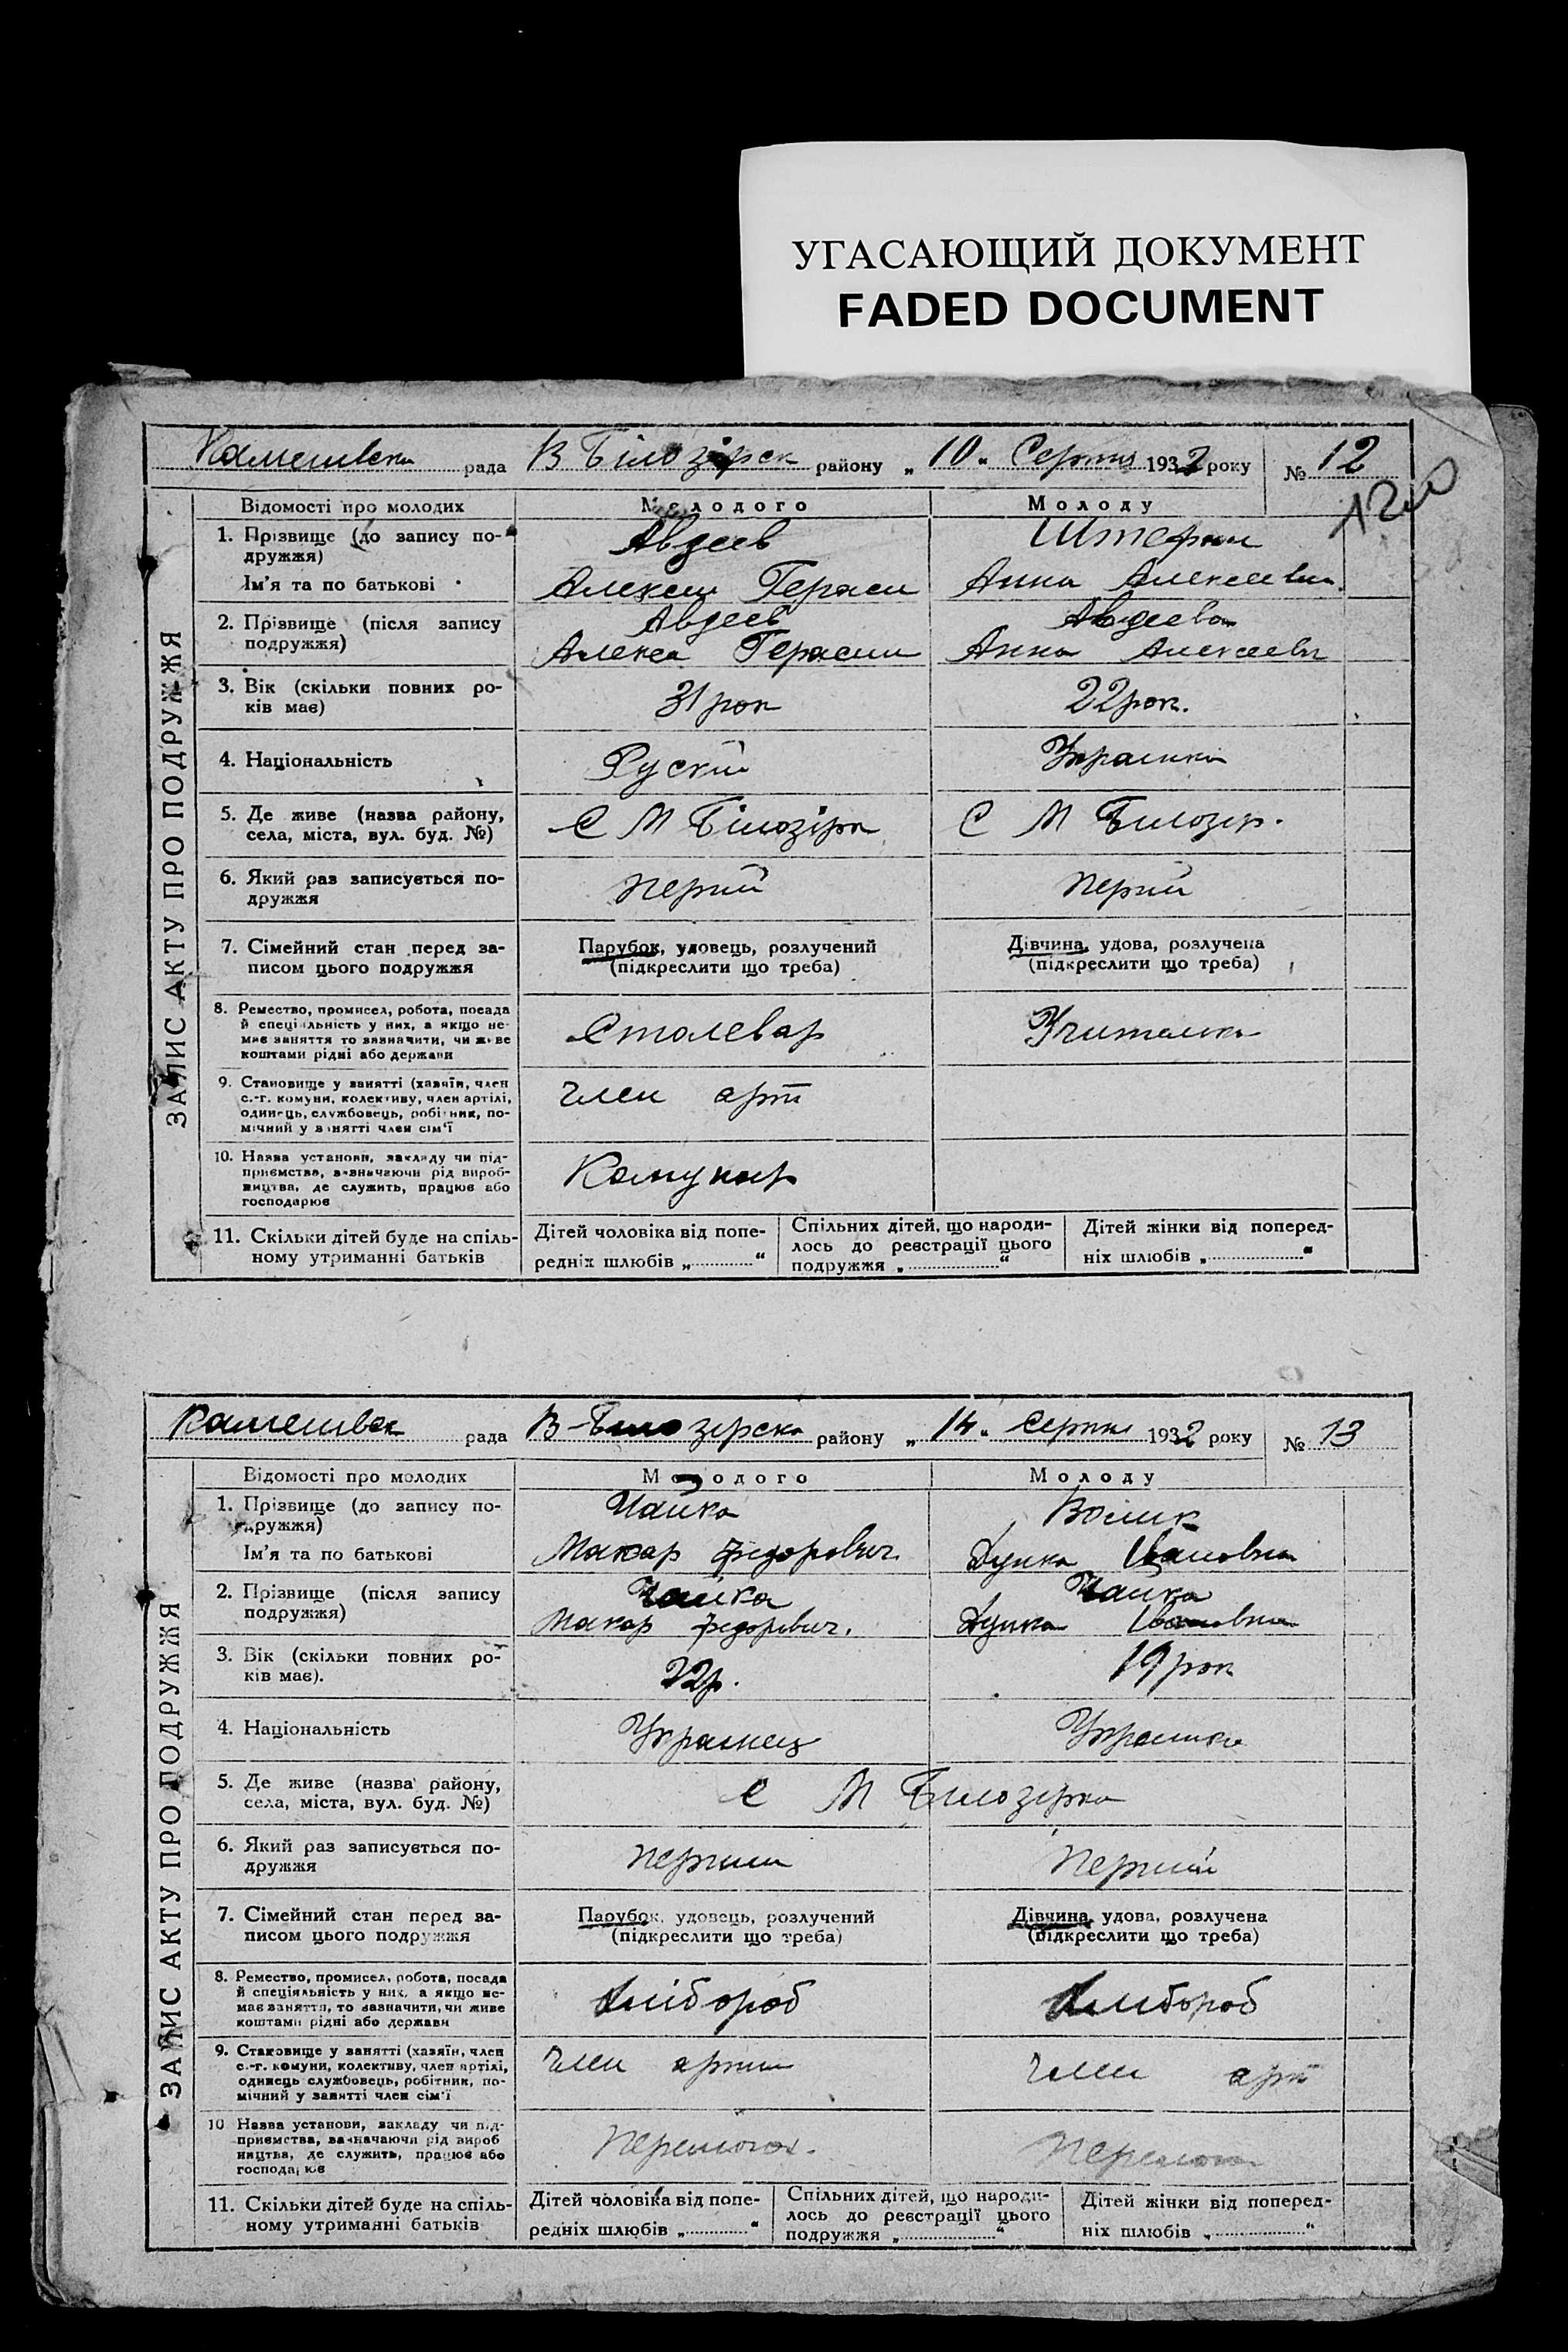 УГАСАЮЩИЙ ДОКУМЕНТ
FADED DOCUMENT
рада В Білозірск району „ 10 „ Серпня 1932 року № 12
1200
ЗАПИС АКТУ ПРО ПОДРУЖЖЯ
Відомості про молодих Молодого Молоду
1. Прізвище (до запису по-
дружжя) Авдеев
Ім'я та по батькові Алексеи Герасим Анна Алексеевна
2. Прізвище (після запису Авдеев Авдеева
подружжя) Алексе Герасим Анна Алексеевн
3. Вік (скільки повних ро-
ків має) 31 рок 22 рок.
4. Національність Рускій Украинка
5. Де живе (назва району,
села, міста, вул. буд. №) С М Білозірка С М Білозір.
6. Який раз записується по-
дружжя перий перий
7. Сімейний стан перед за- Парубок, удовець, розлучений Дівчина, удова, розлучена
писом цього подружжя (підкреслити що треба) (підкреслити що треба)
8. Ремество, промисел, робота, посада
й спеціяльність у них, а якщо не-
має заняття то зазначити, чи живе
коштами рідні або держави Столевар Учителька
9. Становище у занятті (хазяїн, член
с.-г. комуни, колективу, член артілі,
одинець, службовець, робітник, по-
мічний у занятті член сім'ї член арт
10. Назва установи, закладу чи під-
приємства, зазначаючи рід вироб-
ництва, де служить, працює або
господарює Комунар
11. Скільки дітей буде на спіль-
ному утриманні батьків
Дітей чоловіка від попе-
редніх шлюбів „ “
Спільних дітей, що народи-
лось до реєстрації цього
подружжя „ “
Дітей жінки від поперед-
ніх шлюбів „ “
рада В-Білозірска району „ 14 „ Серпня 1932 року № 13
ЗАПИС АКТУ ПРО ПОДРУЖЖЯ
Відомості про молодих Молодого Молоду
1. Прізвище (до запису по- Чайка
дружжя)
Ім'я та по батькові Макар Федорович Дунка Ивановна
2. Прізвище (після запису Чайка Чайка
подружжя) Макар Федорович. Дунка Ивановна
3. Вік (скільки повних ро-
ків має). 22 р. 19 рок
4. Національність Украинец Украинка
5. Де живе (назва району,
села, міста, вул. буд. №) С М Білозірка
6. Який раз записується по-
дружжя перший перший
7. Сімейний стан перед за- Парубок, удовець, розлучений Дівчина, удова, розлучена
писом цього подружжя (підкреслити що треба) (підкреслити що треба)
8. Ремество, промисел, робота, посада
й спеціяльність у них, а якщо не-
має заняття, то зазначити, чи живе
коштами рідні або держави Хлібороб Хлибороб
9. Становище у занятті (хазяїн, член
с.-г. комуни, колективу, член артілі,
одинець службовець, робітник, по-
мічний у занятті член сім'ї член артил член арт
10 Назва установи, закладу чи під-
приємства, зазначаючи рід вироб
ництва, де служить, працює або
господарює Перемога. Перемога
11. Скільки дітей буде на спіль-
ному утриманні батьків
Дітей чоловіка від попе-
редніх шлюбів „ “
Спільних дітей, що народи-
лось до реєстрації цього
подружжя „ “
Дітей жінки від поперед-
ніх шлюбів „ “